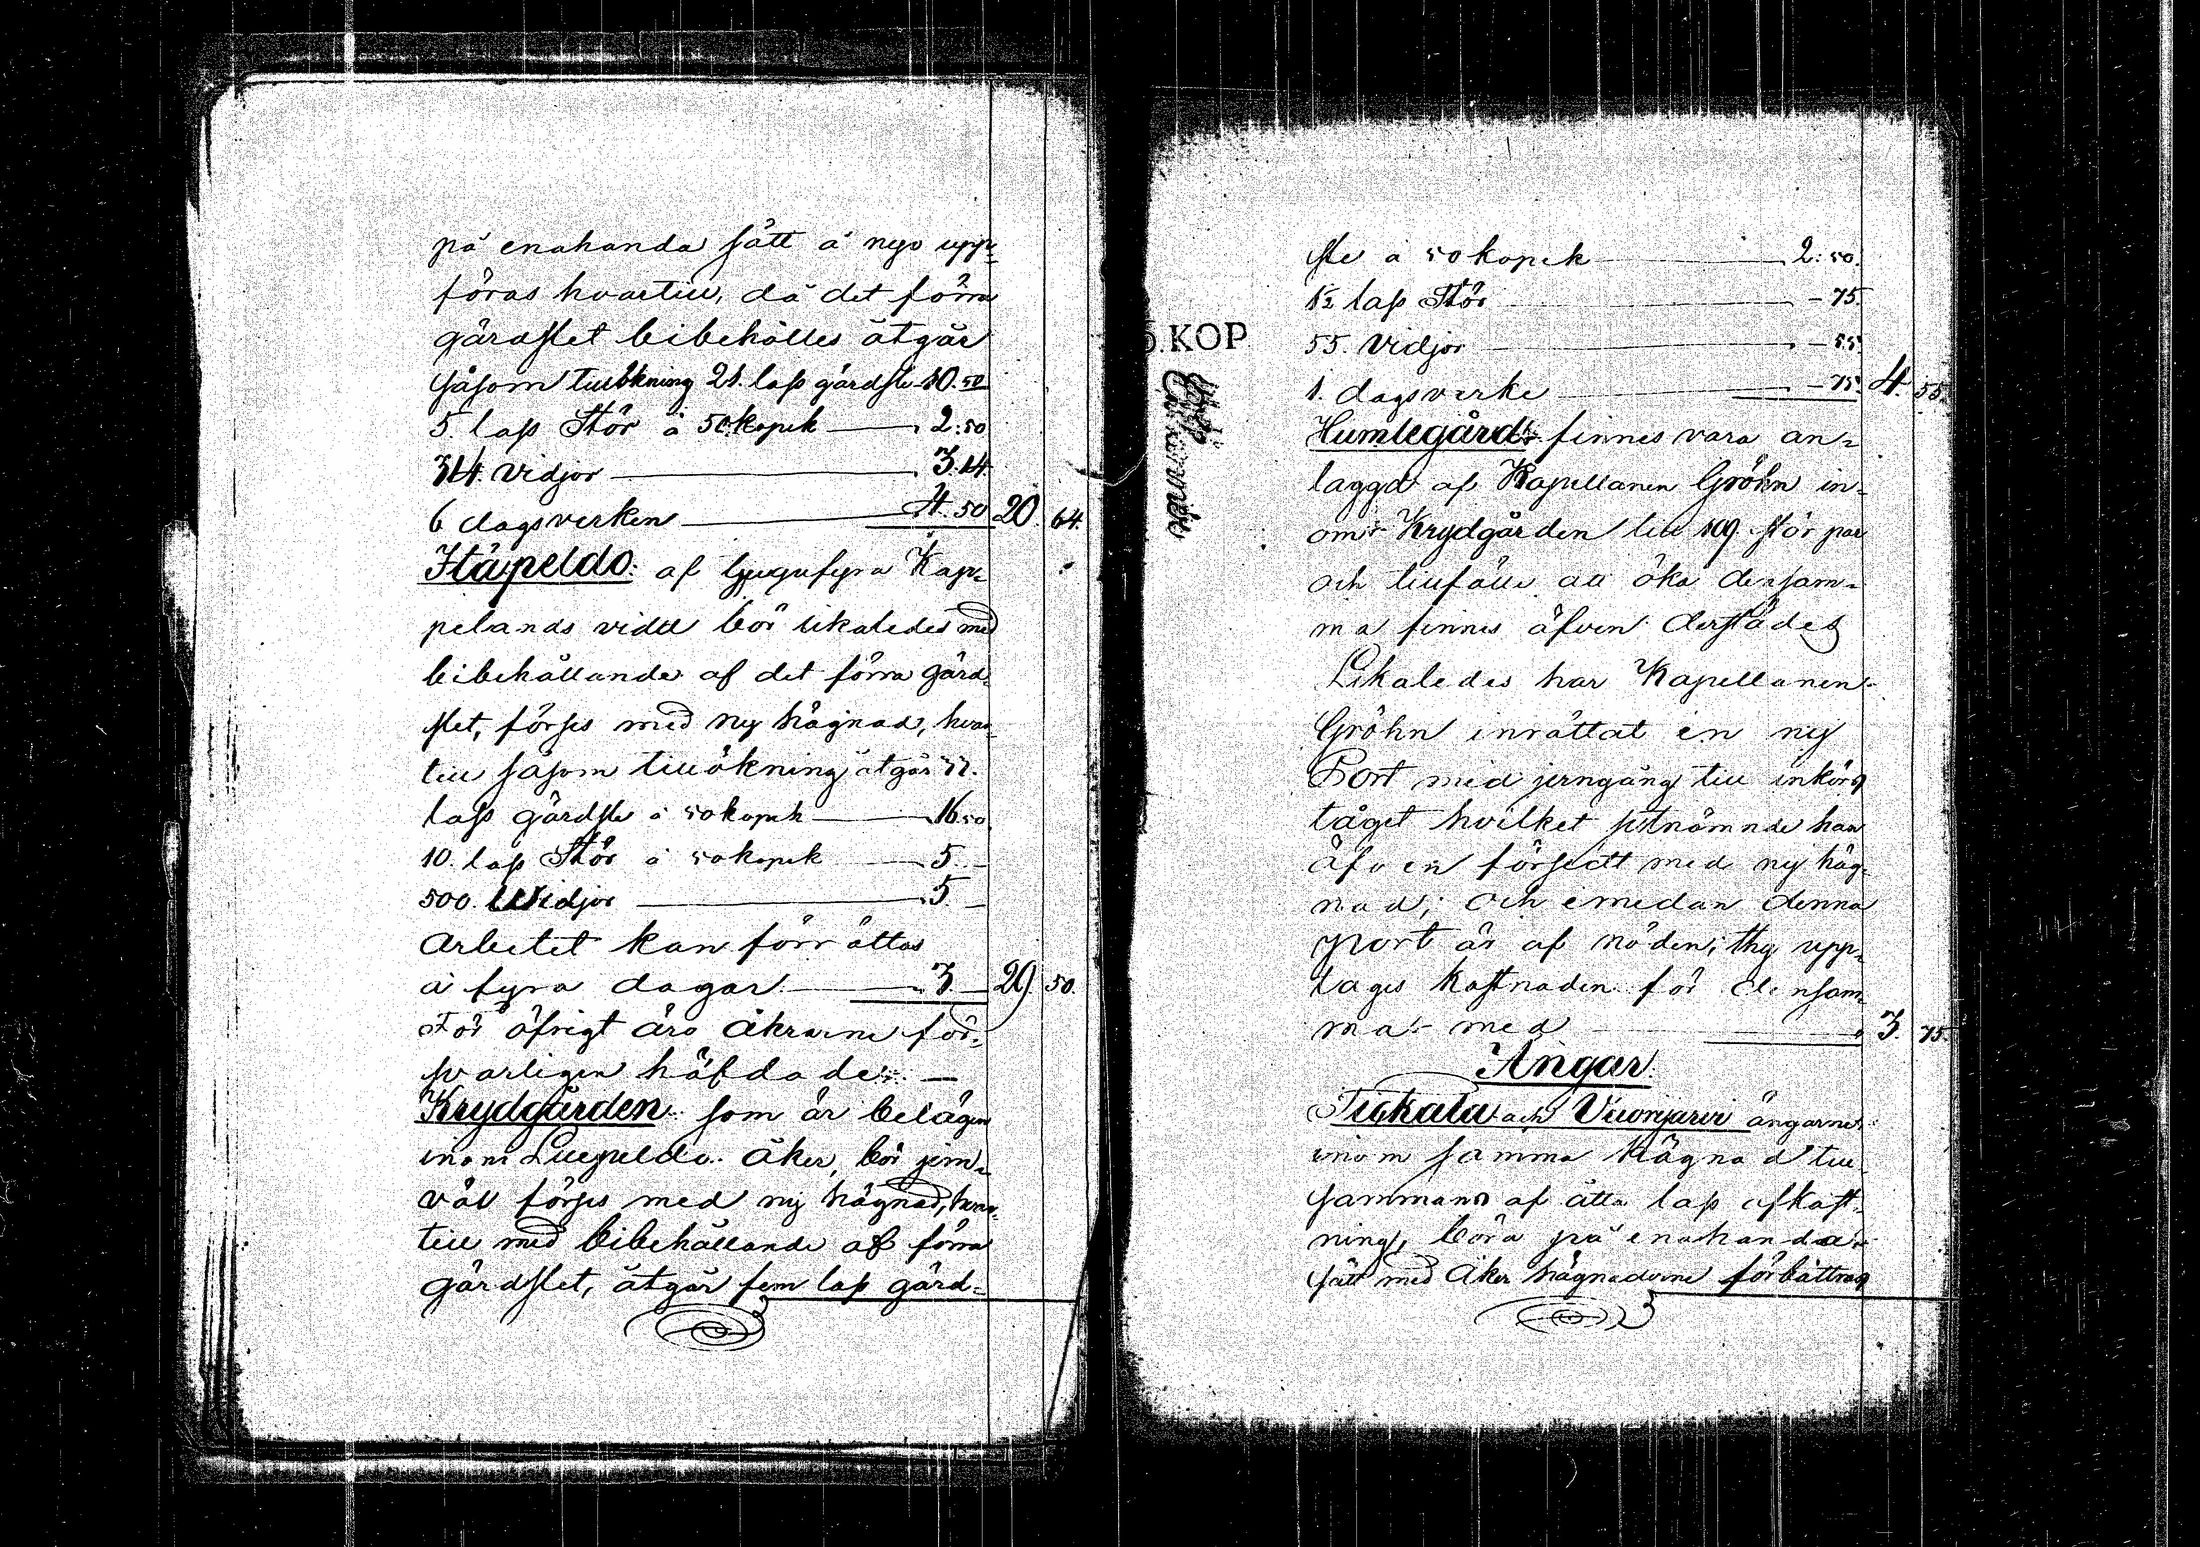 på enahanda sätt å nyo upp-
föras hvartill, då det förra
gärdslet bibehålles åtgår
såsom tillökning 21. lass gärdsle 10.50
5. lass Stör à 50. kopek 2:50
314. vidjor 3.14.
6 dagsverken 4.50 20. 64.
Itäpeldo: af tjugufyra Kap-
pelands vidd bör likaledes med
bibehållande af det förra gärd-
slet, förses med ny hägnad, hvar-
till såsom tillökning åtgår 33.
lass gärdsle à 50 kopek 16.50.
10. lass Stör à 50 kopek 5. —
500. Widjor 5 —
Arbetet kan förrättas
à fyra dagar 3 — 29. 50.
För öfrigt äro åkrarne för-
svarligen häfdade. —
Krydgården som är belägen
inom Luepeldo åker, bör jem-
väl förses med ny hägnad, hvar-
till med bibehållande af förra
gärdslet, åtgår fem lass gärd-
sle à 50 kopek 2:50.
1½ lass Stör — 75.
55. vidjor — 55.
1. dagsverke — 75. 4. 55.
Humlegård finnes vara an-
laggd af Kapellanen Gröhn in-
om Krydgården till 109. stör par
och tillfälle att öka densam-
ma finnes äfven derstädes
Likaledes har Kapellanen
Gröhn inrättat en ny
Port med jerngång till inkörs
tåget hvilket sistnämnde han
äfven försedt med ny häg-
nad; och emedan denna
port är af nöden; thy upp-
tages kostnaden för densam-
ma med 3. 75.
Ängar.
och Vuonjarvi ängarne
inom samma hägnad till-
sammans af åtta lass afkast-
ning, böra på enahanda
sätt med åker hägnaderne förbättras
5.KOP